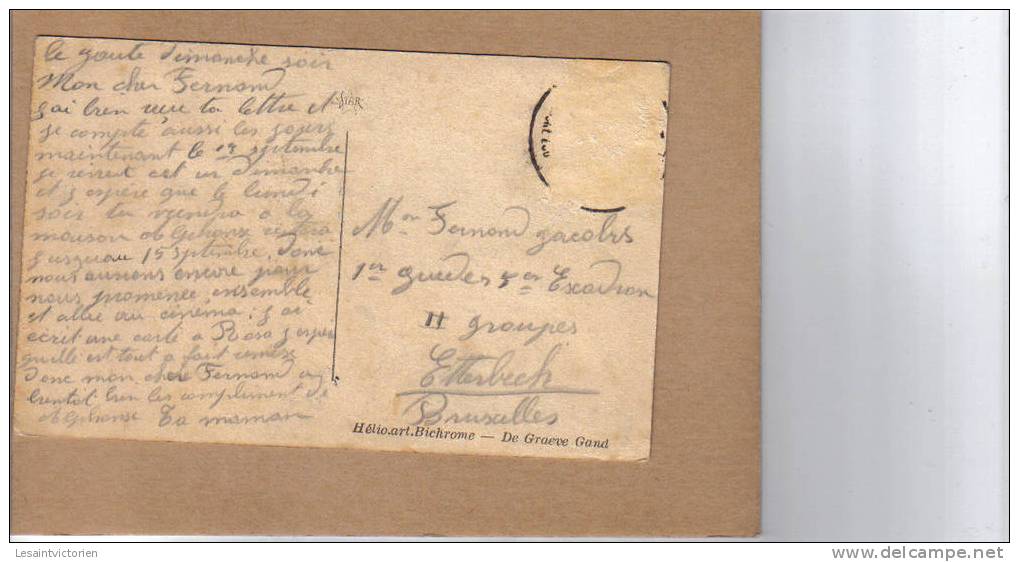 le goute dimanche soir
Mon cher Fernand
j'ai bien recue ta lettre et
je compte aussi les jours
maintenant le 14 septembre
je est un dimanche
et j espère que le lundi
soir tu a la
maison Alphonse
jusquau 15 septembre, donc
nous aurions encore pour
nous promenée, ensemble
et allée au cinema, j ai
écrit une carte a Rosa j espère
quille est tout a fait remise
donc mon cher Fernand a
bientôt bien les compliment de
Alphonse Ta maman
STAR
Mon Fernand Jacobs
1er guides 5er Excadron
II groupes
Etterbeek
Bruxelles
Hélio.art.Bichrome — De Graeve Gand
Lesaintvictorien
delcampe.net